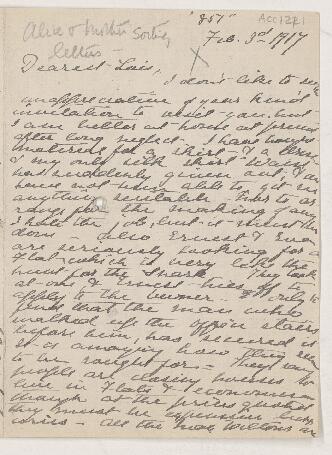 "857"
ACC1281
Alice & mother sorting
letters
Feb. 3rd 1917
Dearest Lois,
I don't like to seem
unappreciative of your kind
invitation to visit you, but
I am better at home at present
after long neglect. I have bought
material for a skirt & a
I my only silk skirt
had suddenly given out, &
have not been able to get in
anything suitable. Have to ar-
range for the making of any
the job, but it must be
done. Also Ernest & Eva
are seriously looking for a
flat which is very like the
hunt for the Snark. They look
at one & Ernest hies off to
apply to the owner only to
find that the man who
walked up the office stairs
before him, has secured it
It is amazing how flats seem
to be sought for. They say
people are closing houses to
live in flats & economise
though at the prices quoted
they must be expensive
all the